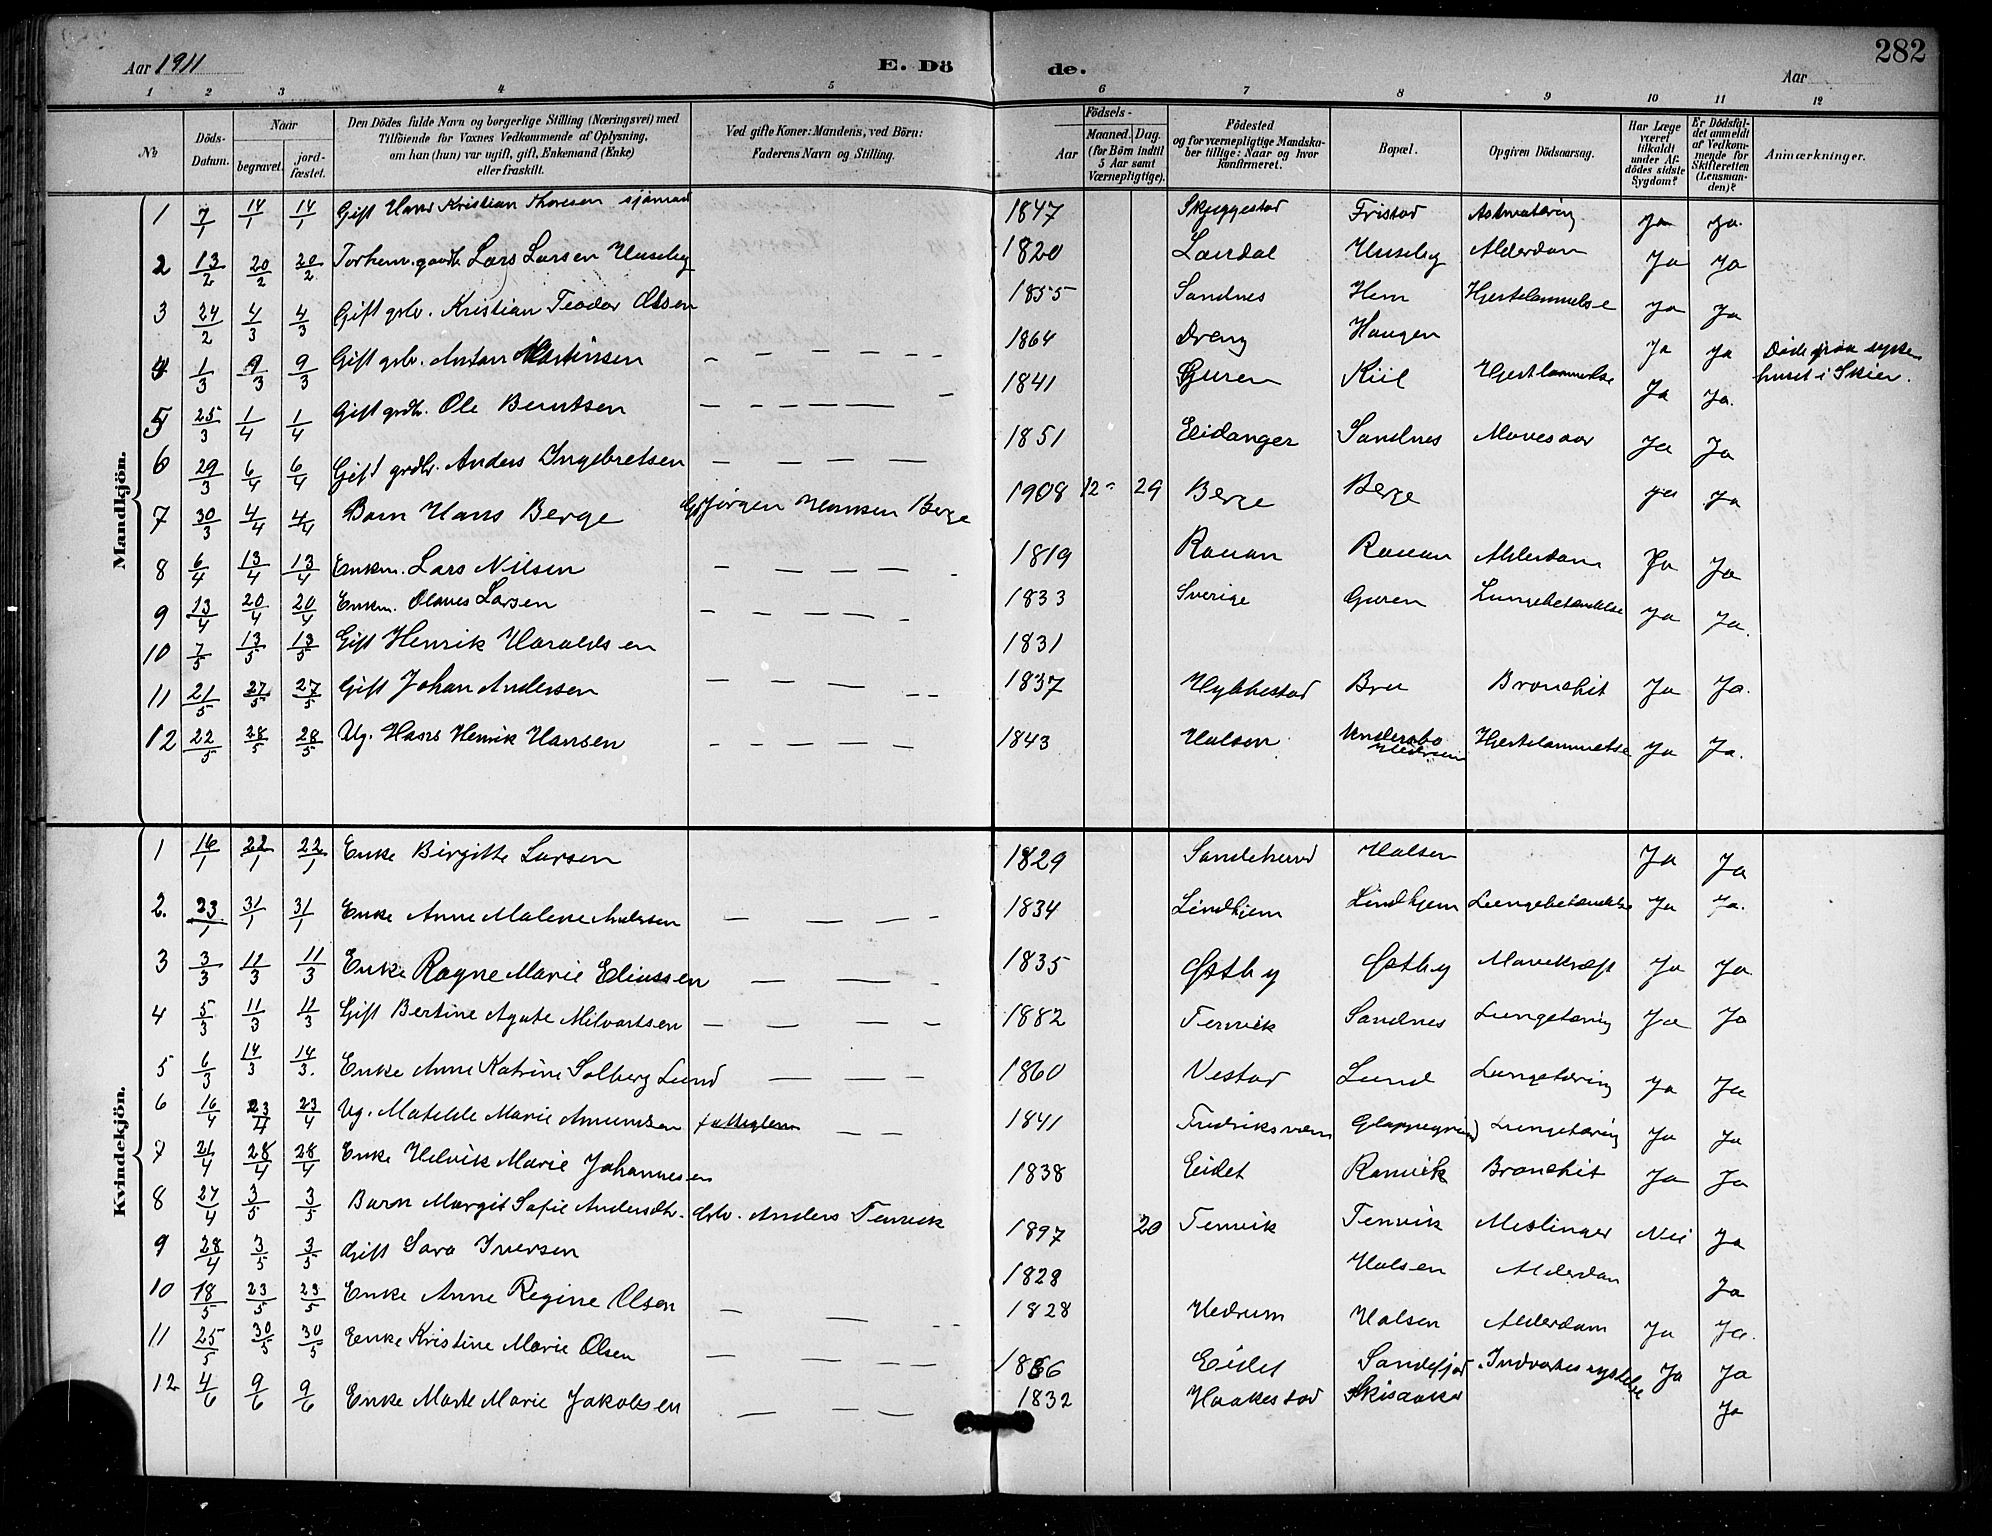 Aar 1911 E. Dö de. Aar 282
1 2 3 4 5 6 7 8 9 10 11 12
№ Döds-Datum. Naar begravet. jordfæstet. Den Dödes fulde Navn og borgerlige Stilling (Næringsvei) med Tilföiende for Voxnes Vedkommende af Oplysning, om han (hun) var ugift, gift, Enkemand (Enke) eller fraskilt. Ved gifte Koner: Mandens, ved Börn: Faderens Navn og Stilling. Födsels- Aar Maaned. Dag. (for Börn indtil 5 Aar samt Værnepligtige). Födested og for værnepligtige Mandskaber tillige: Naar og hvor konfirmeret. Bopæl. Opgiven Dödsaarsag. Har Læge været tilkaldt under Afdödes sidste Sygdom? Er Dödsfaldet anmeldt af Vedkommende for Skifteretten (Lensmanden)? Anmærkninger.
Mandkjön.
1 7/1 14/1 14/1 Gift Hans Kristian Thoresen sjömand 1847 Skjeggestad Fristad Ja Ja.
2 13/2 20/2 20/2 Lars Larsen Huseby 1820 Laurdal Huseby Alderdom Ja Ja
3 24/2 4/3 4/3 Gift grbr. Kristian Teodor Olsen 1855 Sandnes Hem Hjertelammelse Ja Ja
4 1/3 9/3 9/3 Gift grbr. Anton Martinsen — — — — - - 1864 Dreng Haugen Ja Ja Döde paa syke-
huset i Skien.
5 25/3 1/4 1/4 Gift grdbr. Ole Berntsen — — — — - 1841 Guren Kiil Hjertlammelse Ja Ja.
6 29/3 6/4 6/4 Gift grdbr. Anders Ingebretsen — — — — 1851 Eidanger Sandnes Mavesaar Ja Ja
7 30/3 4/4 4/4 Barn Hans Berge Jörgen Hansen Berge 1908 12 29 Berge Berge Ja Ja
8 6/4 13/4 13/4 Enkm. Lars Nilsen — — — — - 1819 Rauan Rauan Alderdom Ja Ja
9 13/4 20/4 20/4 Enkm. Olaves Larsen — — — — - 1833 Sverige Guren Lungebetændelse Ja Ja.
10 7/5 13/5 13/5 Gift Henrik Haraldsen 1831
11 21/5 27/5 27/5 Gift Johan Andersen — — — - - 1837 Hybbestad Bru Bronchit Ja Ja.
12 22/5 28/5 28/5 Ug. Hans Henrik Hansen — — — — - 1843 Halsen Undersbo
Hedrum Hjertelammelse Ja Ja.
Kvindekjön.
1 16/1 22/1 22/1 Enke Birgitte Larsen 1829 Sandeherred Halsen Ja Ja
2. 23/1 31/1 31/1 Enke Anne Malene Andersen — — — - 1834 Lindhjem Lindhjem Lungebetændelse Ja Ja.
3 3/3 11/3 11/3 Enke Ragne Marie Eliassen — — - 1835 Østby Østby Mavekræft Ja Ja
4 5/3 11/3 11/3 Gift Bertine Agate Milvartsen — — — - 1882 Tenvik Sandnes Lungetæring Ja Ja
5 6/3 14/3 14/3. Enke Anne Katrine Solberg Lund — — — 1860 Vestad Lund Lungetæring Ja Ja
6 16/4 23/4 23/4 Ug. Matilde Marie Amundsen — — 1841 Fredriksværn Lungetæring Ja Ja
7 21/4 28/4 28/4 Enke Helvik Marie Johannesen 1838 Eidet Ranvik Bronchit Ja Ja
8 27/4 3/5 3/5 Barn Margit Sofie Andersdtr. Grbr. Anders Tenvik 1897 20 Tenvik Tenvik Meslinger Nei Ja
9 28/4 3/5 3/5 Gift Sara Iversen 1828 Halsen Alderdom Ja
10 18/5 23/5 23/5 Enke Anne Regine Olsen — — - - 1828 Hedrum Halsen Alderdom Ja Ja.
11 25/5 30/5 30/5 Enke Kristine Marie Olsen — — — — 1866 Eidet Sandefjord Ja Ja
12 4/6 9/6 9/6 Enke Marte Marie Jakobsen — — — - 1832 Haakestad Skisaaker Ja